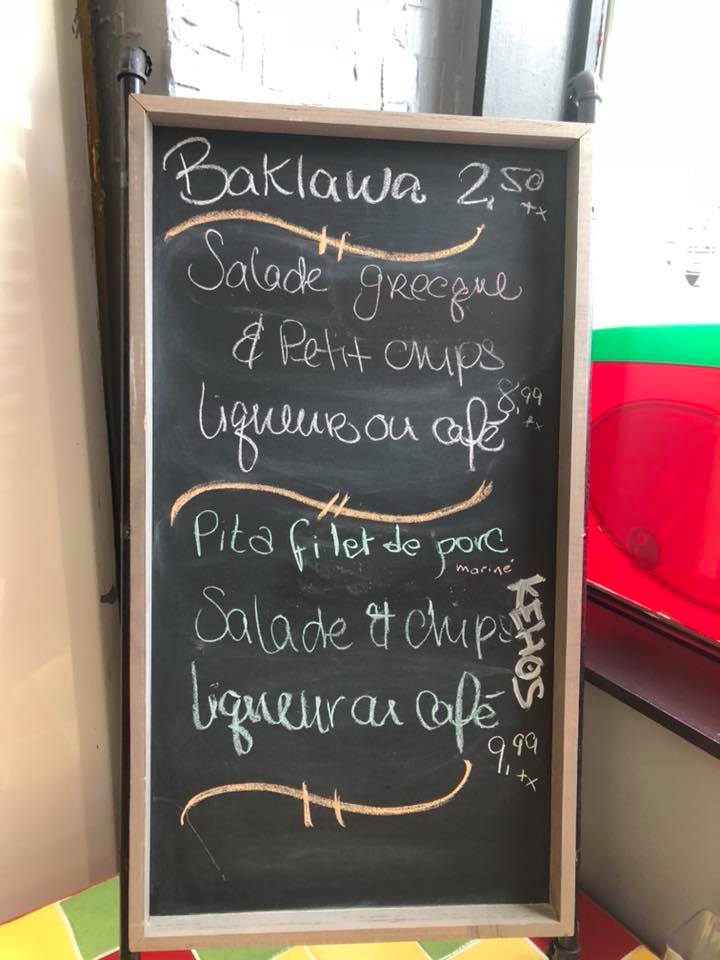 Baklawa 2,50
tx
Salade grecque
& Petit chips
8,99
tx
liqueurs ou café
Pita filet de porc
mariné
Salade & chips
KEHOS
liqueur ou café
9,99
tx